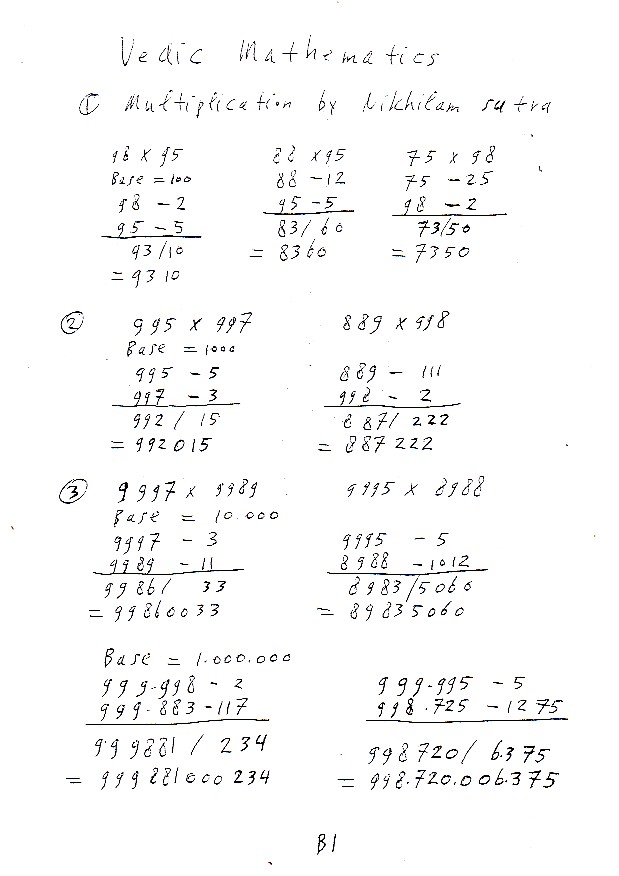 Vedic Mathematics
① Multiplication by Nikhilam sutra
98 x 95 88 x95 75 x 98
Base = 100 88 -12 75 -25
98 - 2 95 - 5 98 - 2
95 - 5 83/60 73/50
93/10 = 8360 = 7350
= 9310
② 995 x 997 889 x 998
Base = 1000
995 - 5 889 - 111
997 - 3 998 - 2
992 / 15 887/ 222
= 992015 = 887222
③ 9997 x 9989 9995 x 8988
Base = 10.000
9997 - 3 9995 - 5
9989 - 11 8988 - 1012
9986/ 33 8983/5060
= 99860033 = 89835060
Base = 1.000.000
999.998 - 2 999.995 - 5
999.883 -117 998.725 - 1275
999881 / 234 998720/ 6.375
= 999881000234 = 998.720.006.375
B1